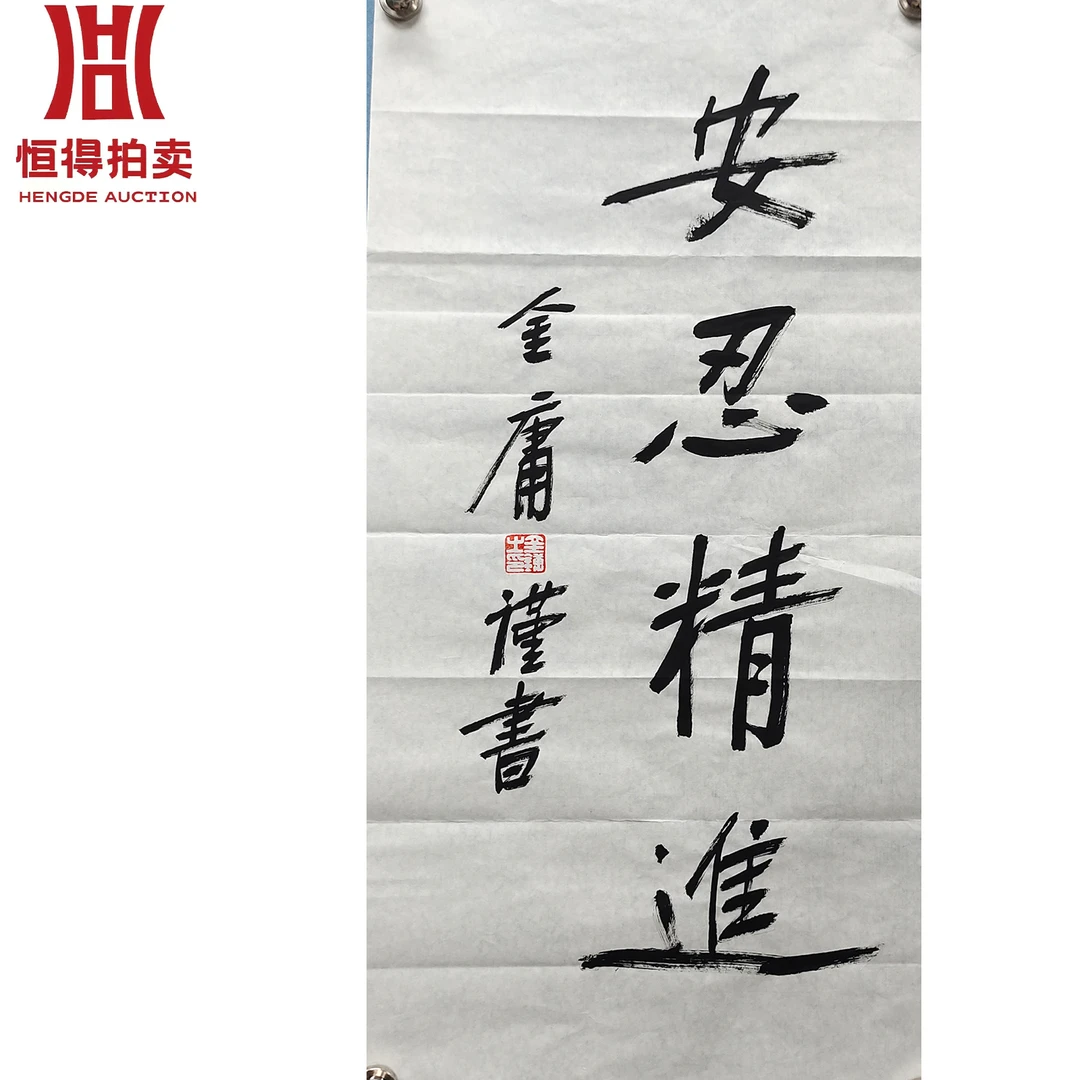 恒得拍卖
HENGDE AUCTION
安忍精進
金庸
謹書